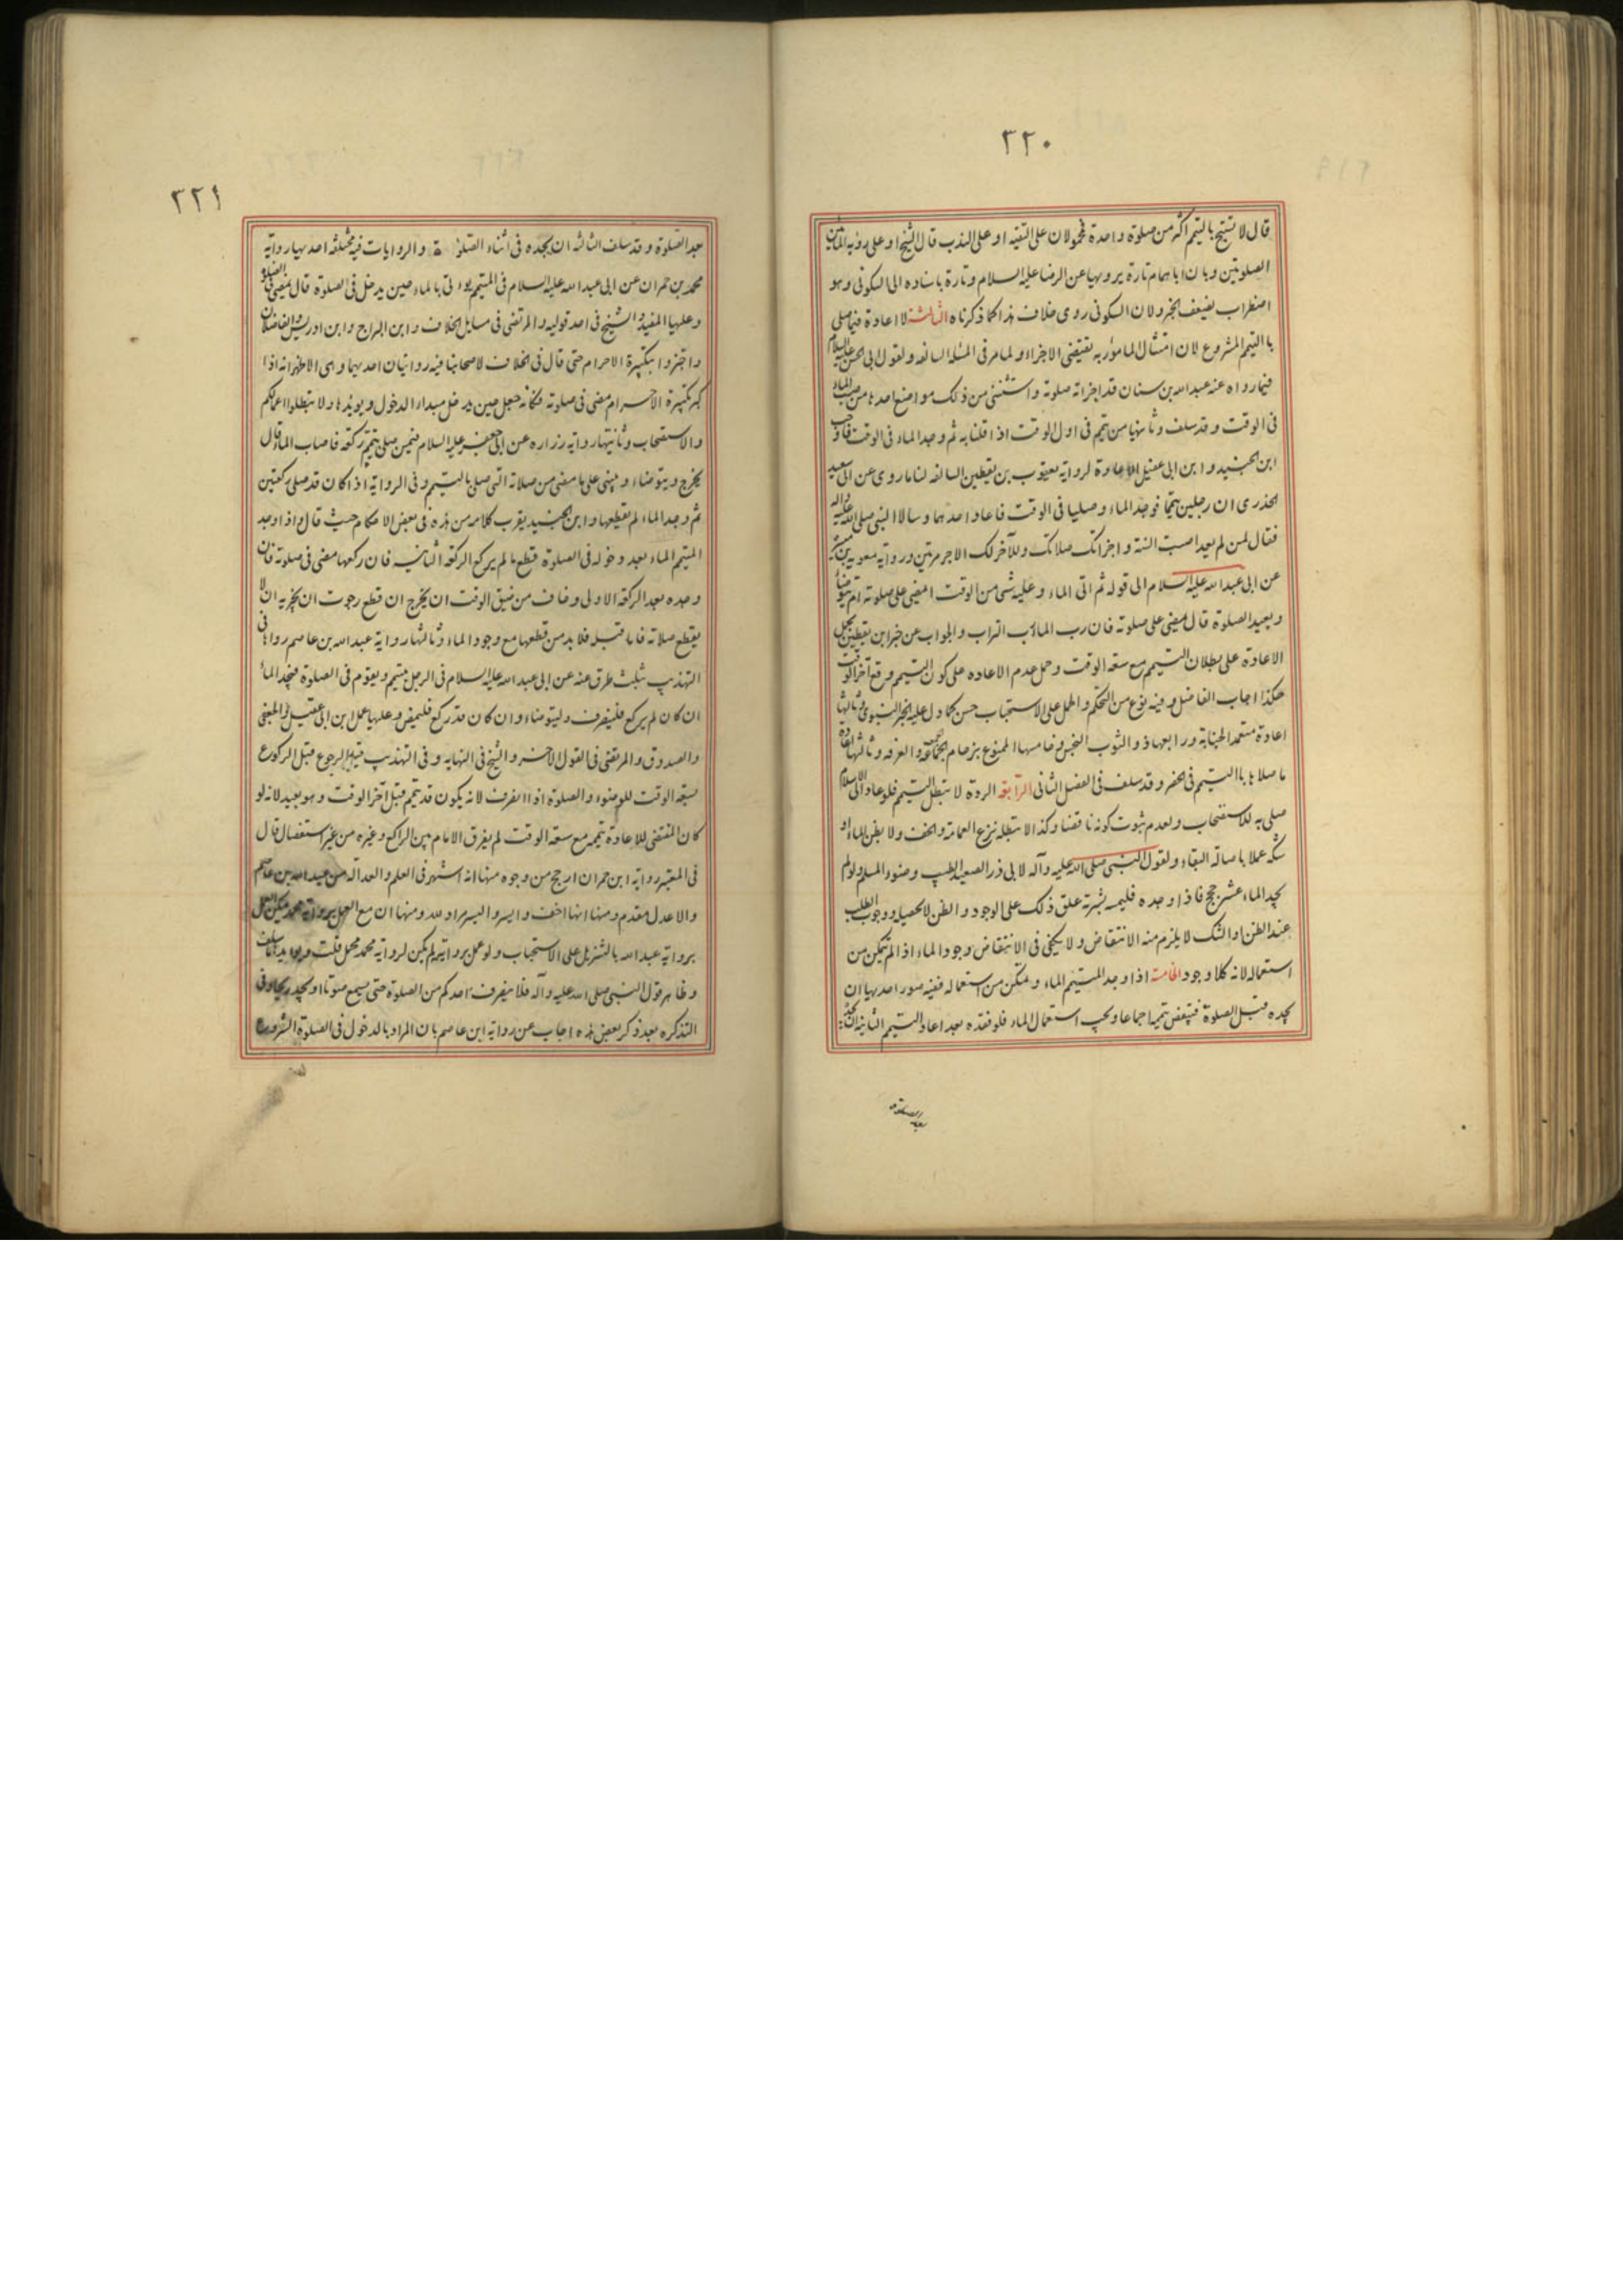 ٣٢٠
قال لا تستبح بالتيمم اكثر من صلوة واحدة فمحمولان على التقيه او على الندب قال الشيخ او على رؤيه الماء بين
الصلوتين وبان اباهمام تارة يرويها عن الرضا عليه السلام وتارة باسناده الى السكونى وهو
اضطراب يضعف الخبر ولان السكونى روى خلاف هذا كما ذكرناه الثالثة لا اعادة فيما صلى
باالتيمم المشروع لان امتثال المامور به يقتضى الاجزاء ولما مر فى المسئلة السالفه ولقول ابى الحسن عليه السلام
فيما رواه عنه عبدالله بن سنان قد اجزاته صلوته واستثنى من ذلك مواضع احدها من صب الماء
فى الوقت وقد سلف وثانيها من تيمم فى اول الوقت اذا قلنا به ثم وجد الماء فى الوقت فاوجب
ابن الجنيد وابن ابى عقيل الاعادة لرواية يعقوب بن يقطين السالفه لنا ما روى عن ابى سعيد
الخدرى ان رجلين تيمما فوجدا الماء وصليا فى الوقت فاعاد احدهما وسالا النبى صلى الله عليه واله
فقال لمن لم يعد اصبت السنة واجزاتك صلاتك وللآخر لك الاجر مرتين ورواية معويه بن ميسرة
عن ابى عبدالله عليه السلام الى قوله ثم اتى الماء وعليه شئ من الوقت ايمضى على صلوته ام يتوضأ
ويعيد الصلوة قال يمضى على صلوته فان رب الماء رب التراب والجواب عن خبر ابن يقطين بحمل
الاعادة على بطلان التيمم مع سعة الوقت وحمل عدم الاعاده على كون التيمم وقع آخر الوقت
هكذا اجاب الفاضل وفيه نوع من التحكم والحمل على الاستحباب حسن كما دل عليه الخبر النبوى وثالثها
اعادة متعمد الجنابة ورابعها ذو الثوب النجس وخامسها الممنوع بزحام الجمعة والعرفه وثالثها اعادة
ما صلاها باالتيمم فى الحضر وقد سلف فى الفصل الثانى الرابعة الردة لا تبطل التيمم فلو عاد الى الاسلام
صلى به للاستصحاب ولعدم ثبوت كونه ناقضا وكذا لا تبطله نزع العمامة والخف ولا بظن الماء او
شكه عملا باصالة البقاء ولقول النبى صلى الله عليه وآله لابى ذر الصعيد الطيب وضوء المسلم ولو لم
يجد الماء عشر حجج فاذا وجده فليمسه بشرته علق ذلك على الوجود والظن لا يحصله ووجوب الطلب
عند الظن او الشك لا يلزم منه الانتقاض ولا يكفى فى الانتقاض وجود الماء اذا لم يتمكن من
استعماله لانه كلا وجود الخامسة اذا وجد المتيمم الماء وتمكن من استعماله ففيه صور احديها ان
يجده قبل الصلوة فينتقض تيممه اجماعا ويجب استعمال الماء فلو فقده بعد اعاد التيمم الثانية ان يجده
بعد الصلوة
٣٢١
بعد الصلوة وقد سلف الثالثه ان يجده فى اثناء الصلوة والروايات فيه مختلفة احديها رواية
محمد بن حمران عن ابى عبدالله عليه السلام فى المتيمم يوتى بالماء حين يدخل فى الصلوة قال يمضى فى الصلوة
وعليها المفيد والشيخ فى احد قوليه والمرتضى فى مسايل الخلاف وابن البراج وابن ادريس والفاضلان
واجتزوا بتكبيرة الاحرام حتى قال فى الخلاف لاصحابنا فيه روايتان احديهما وهى الاظهر انه اذا
كبر تكبيرة الاحرام مضى فى صلوته فكانه جعل حين يدخل مبداء الدخول ويويدها ولا تبطلوا اعمالكم
والاستصحاب وثانيتها رواية زراره عن ابى جعفر عليه السلام فيمن صلى بتيمم ركعة فاصاب الماء قال
يخرج ويتوضاء ويبنى على ما مضى من صلاته التى صلى بالتيمم وفى الرواية اذا كان قد صلى ركعتين
ثم وجد الماء لم يقطعها وابن الجنيد يقرب كلامه من هذه فى بعض الاحكام حيث قال واذا وجد
المتيمم الماء بعد دخوله فى الصلوة قطع ما لم يركع الركعة الثانيه فان ركعها مضى فى صلوته فان
وجده بعد الركعة الاولى وخاف من ضيق الوقت ان يخرج ان قطع رجوت ان يجزيه ان لا
يقطع صلاته فاما قبله فلابد من قطعها مع وجود الماء وثالثها رواية عبدالله بن عاصم رواها فى
التهذيب بثلث طرق عنه عن ابى عبدالله عليه السلام فى الرجل يتيمم ويقوم فى الصلوة فيجد الماء
ان كان لم يركع فلينصرف وليتوضاء وان كان قد ركع فليمض وعليها عمل ابن ابى عقيل والجعفى
والصدوق والمرتضى فى القول الاخر والشيخ فى النهايه وفى التهذيب قيد الرجوع قبل الركوع
بسعة الوقت للوضوء والصلوة اذا انصرف لانه يكون قد تيمم قبل آخر الوقت وهو بعيد لانه لو
كان المقتضى للاعادة تيممه مع سعة الوقت لم يفرق الامام بين الراكع وغيره من غير استفصال قال
فى المعتبر رواية ابن حمران ارجح من وجوه منها انه اشهر فى العلم والعدالة من عبدالله بن عاصم
والاعدل مقدم ومنها انها اخف وايسر واليسر مراد لله ومنها ان مع العمل برواية محمد يمكن العمل
برواية عبدالله بالتنزيل على الاستحباب ولو عمل بروايته لم يكن لرواية محمد محمل قلت ويويد ما سلف
وظاهر قول النبى صلى الله عليه وآله فلا ينصرف احدكم من الصلوة حتى يسمع صوتا او يجد ريحا وفى
التذكره بعد ذكر بعض هذه اجاب عن رواية ابن عاصم بان المراد بالدخول فى الصلوة الشروع